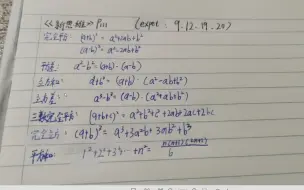 《新思维》P111 (expet: 9.12.19.20)
完全平方: (a+b)²=a²+2ab+b²
(a-b)²=a²-2ab+b²
平方差: a²-b²=(a+b)·(a-b)
立方和: a³+b³=(a+b)·(a²-ab+b²)
立方差: a³-b³=(a-b)·(a²+ab+b²)
三数完全平方: (a+b+c)²=a²+b²+c²+2ab+2ac+2bc
完全立方: (a+b)³=a³+3a²b+3ab²+b³
平方和: 1²+2²+3²…+n²=n(n+1)(2n+1)/6